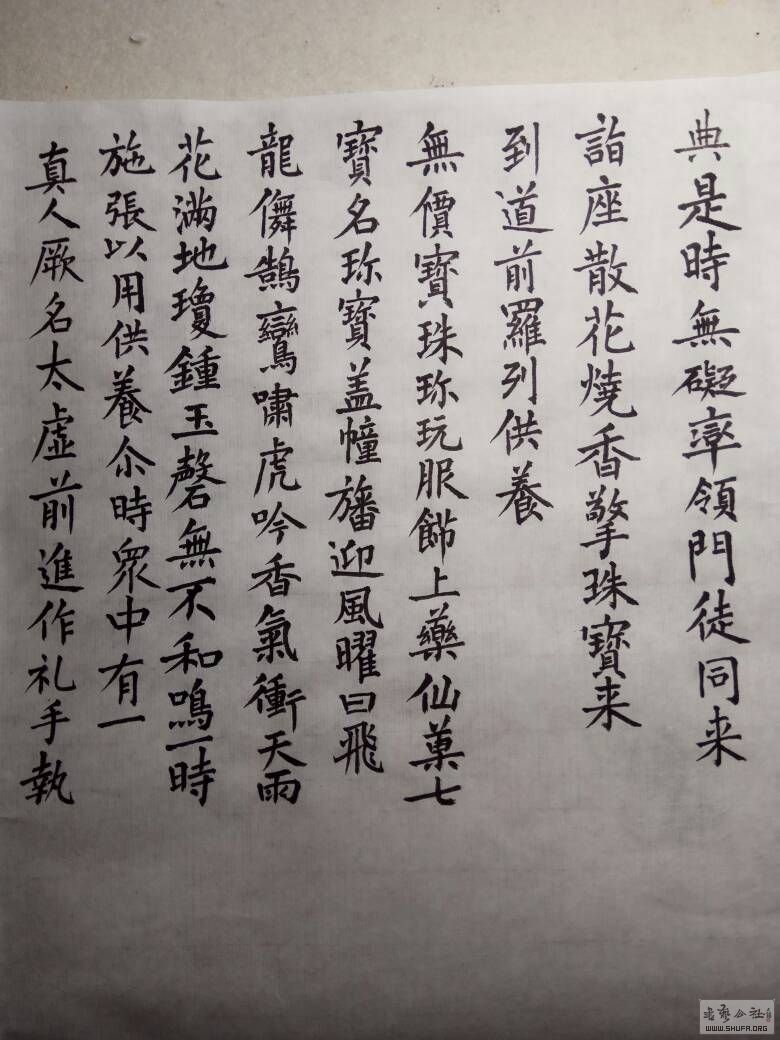 典是時無礙率領門徒同来
詣座散花燒香擎珠寶来
到道前羅列供養
無價寶珠珎玩服飾上藥仙菓七
寶名珎寶盖幢旛迎風曜日飛
龍儛鵠鸞嘯虎吟香氣衝天雨
花滿地瓊鍾玉磬無不和鳴一時
施張以用供養尒時眾中有一
真人厥名太虛前進作礼手執
WWW.SHUFA.ORG